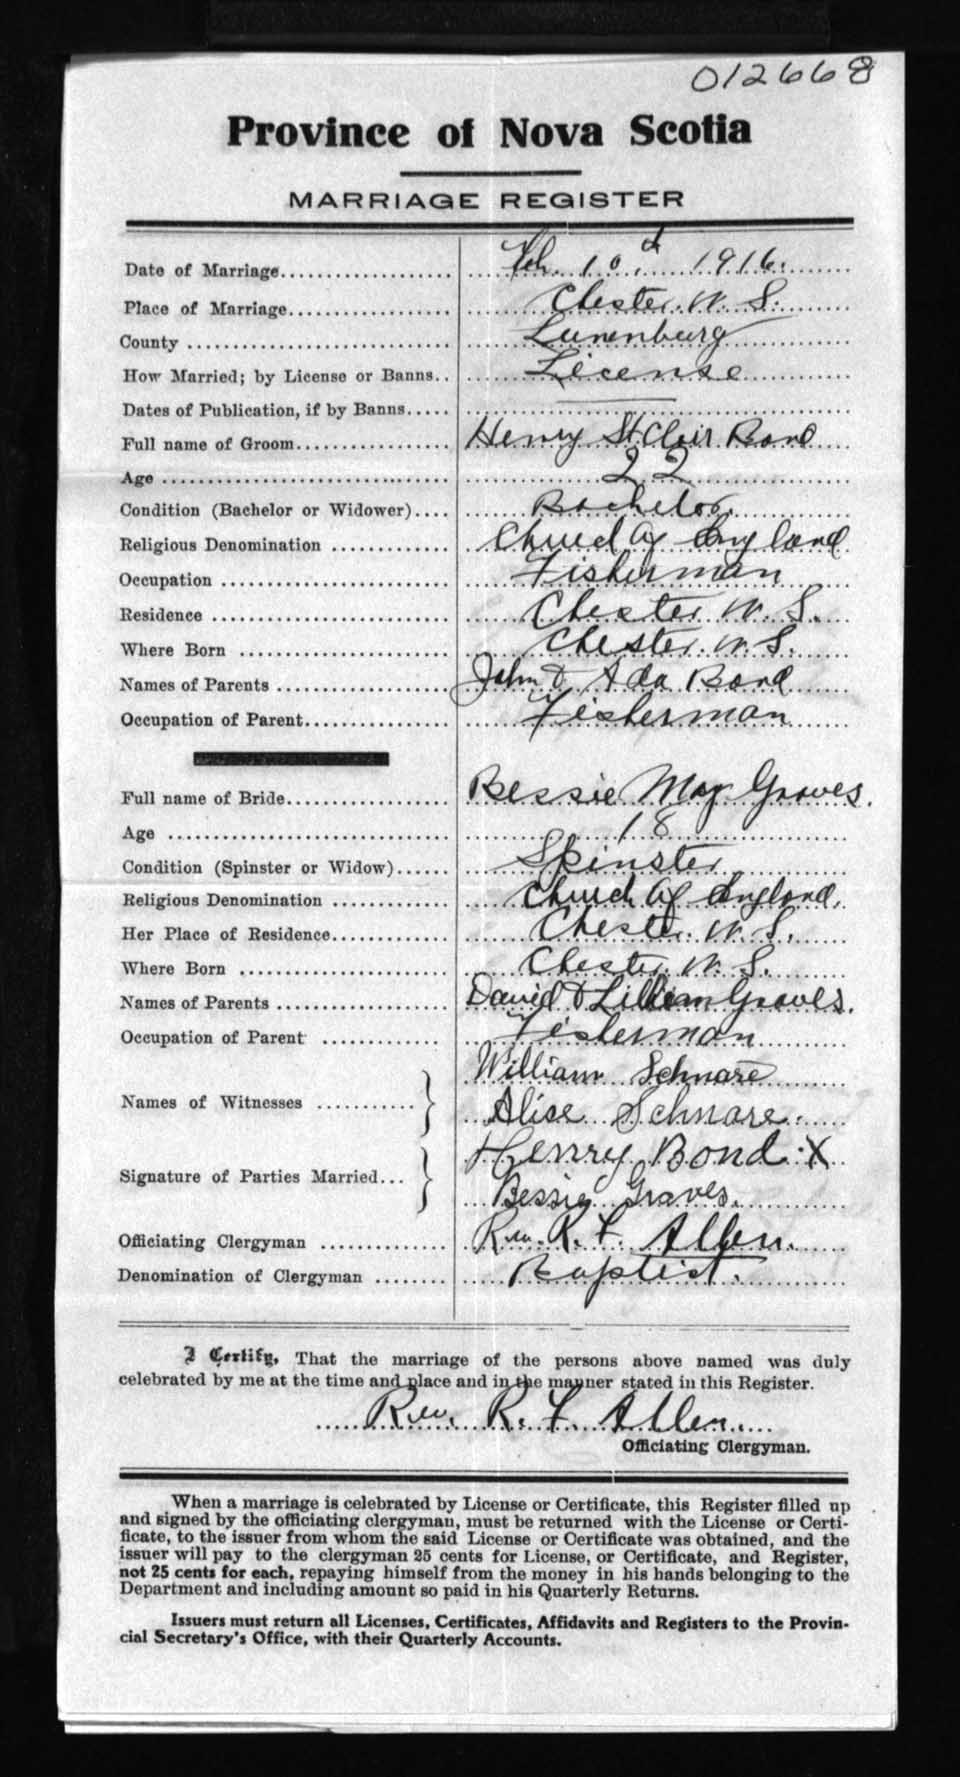 012668
Province of Nova Scotia
MARRIAGE REGISTER
Date of Marriage.................... Feb. 10, 1916.
Place of Marriage................... Chester. N. S.
County .............................. Lunenburg
How Married; by License or Banns.. License
Dates of Publication, if by Banns.....
Full name of Groom.................. Henry St Clair Bond
Age ................................. 22
Condition (Bachelor or Widower).... Bachelor.
Religious Denomination ............. Church of England
Occupation .......................... Fisherman
Residence ........................... Chester N. S.
Where Born ......................... Chester. N. S.
Names of Parents ................... John & Ada Bond
Occupation of Parent................. Fisherman
Full name of Bride................... Bessie May Graves.
Age ................................. 18
Condition (Spinster or Widow)...... Spinster
Religious Denomination ............. Church of England.
Her Place of Residence.............. Chester. N. S.
Where Born ......................... Chester, N. S.
Names of Parents ................... David & Lillian Graves.
Occupation of Parent ............... Fisherman
William Schnare
Names of Witnesses ............
Alise Schnare.
Henry Bond X
Signature of Parties Married...
Bessie Graves.
Officiating Clergyman ............... Rev. R. F. Allen.
Denomination of Clergyman ........ Baptist.
I Certify, That the marriage of the persons above named was duly
celebrated by me at the time and place and in the manner stated in this Register.
Rev. R. F. Allen.
Officiating Clergyman.
When a marriage is celebrated by License or Certificate, this Register filled up
and signed by the officiating clergyman, must be returned with the License or Certi-
ficate, to the issuer from whom the said License or Certificate was obtained, and the
issuer will pay to the clergyman 25 cents for License, or Certificate, and Register,
not 25 cents for each, repaying himself from the money in his hands belonging to the
Department and including amount so paid in his Quarterly Returns.
Issuers must return all Licenses, Certificates, Affidavits and Registers to the Provin-
cial Secretary's Office, with their Quarterly Accounts.